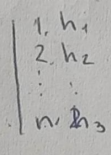 1. h₁
2. h₂
⋮ ⋮
n. h₃